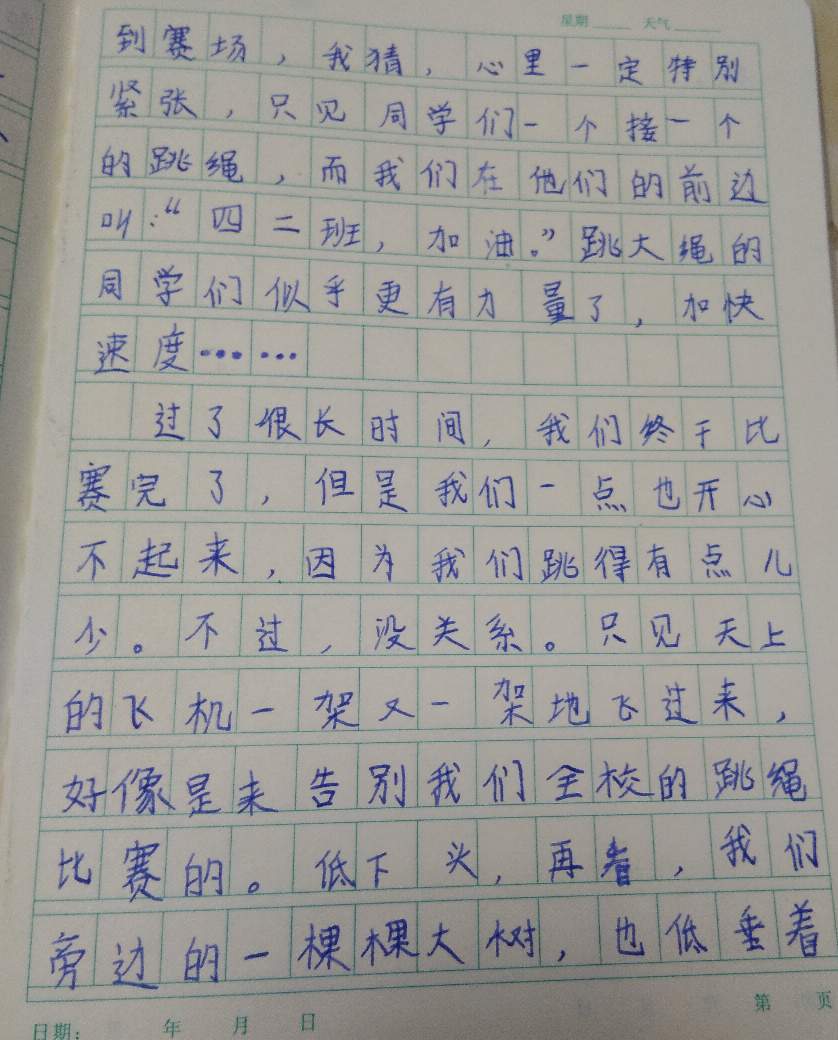 星期 天气
到赛场，我猜，心里一定特别
紧张，只见同学们一个接一个
的跳绳，而我们在他们的前边
叫：“四二班，加油。”跳大绳的
同学们似乎更有力量了，加快
速度……
过了很长时间，我们终于比
赛完了，但是我们一点也开心
不起来，因为我们跳得有点儿
少。不过，没关系。只见天上
的飞机一架又一架地飞过来，
好像是来告别我们全校的跳绳
比赛的。低下头，再看，我们
旁边的一棵棵大树，也低垂着
第 页
日期： 年 月 日